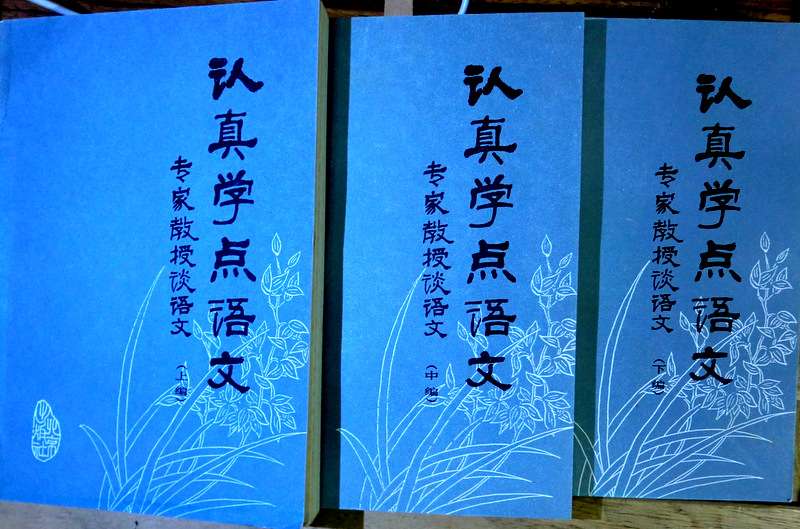 认真学点语文
专家教授谈语文
（上编）
认真学点语文
专家教授谈语文
（中编）
认真学点语文
专家教授谈语文
（下编）